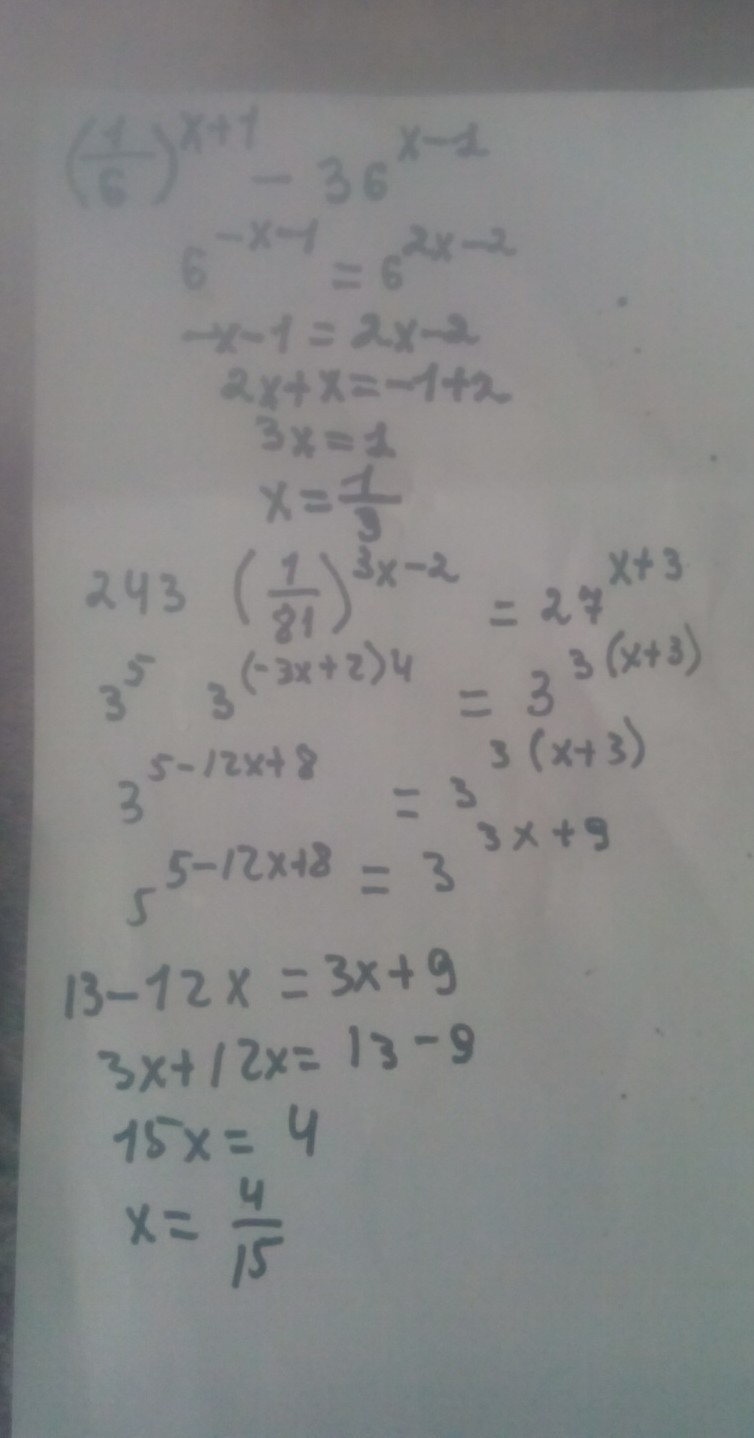 (1/6)^(x+1) - 36^(x-1)
6^(-x-1) = 6^(2x-2)
-x-1 = 2x-2
2x+x=-1+2
3x=1
x=1/3
243 (1/81)^(3x-2) = 27^(x+3)
3^5 3^((-3x+2)4) = 3^(3(x+3))
3^(5-12x+8) = 3^(3(x+3))
5^(5-12x+8) = 3^(3x+9)
13-12x = 3x+9
3x+12x= 13-9
15x= 4
x= 4/15